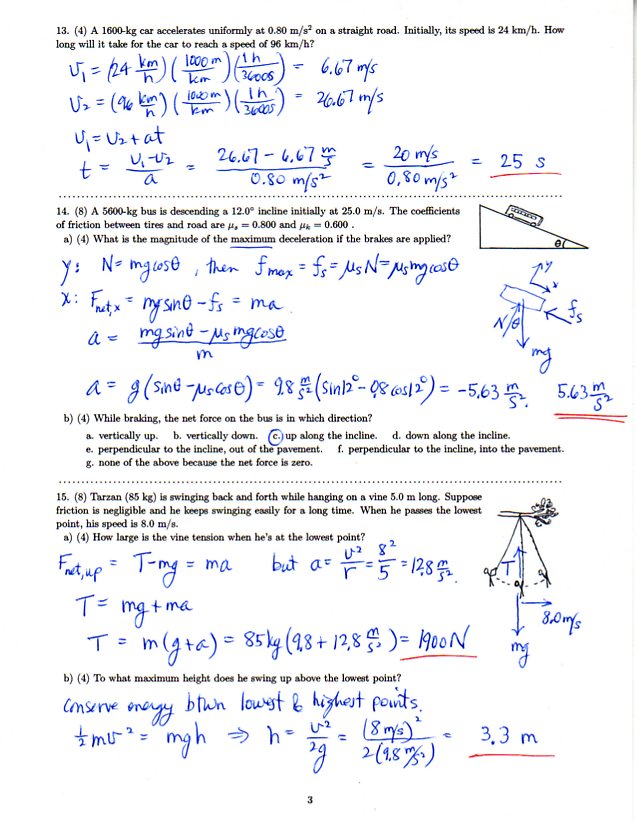 13. (4) A 1600-kg car accelerates uniformly at 0.80 m/s² on a straight road. Initially, its speed is 24 km/h. How
long will it take for the car to reach a speed of 96 km/h?
v₁ = (24 km/h)(1000 m/km)(1 h/3600s) = 6.67 m/s
v₂ = (96 km/h)(1000 m/km)(1 h/3600s) = 26.67 m/s
v₁ = v₂ + at
t = (v₁-v₂)/a = (26.67 - 6.67 m/s)/(0.80 m/s²) = (20 m/s)/(0.80 m/s²) = 25 s
14. (8) A 5600-kg bus is descending a 12.0° incline initially at 25.0 m/s. The coefficients
of friction between tires and road are μs = 0.800 and μk = 0.600 .
θ
a) (4) What is the magnitude of the maximum deceleration if the brakes are applied?
y: N = mg cosθ , then fmax = fs = μsN = μs mg cosθ
x: Fnet,x = mg sinθ - fs = ma
a = (mg sinθ - μs mg cosθ)/m
y
x
N
θ
fs
mg
a = g(sinθ - μs cosθ) = 9.8 m/s² (sin12° - 0.8 cos12°) = -5.63 m/s². 5.63 m/s²
b) (4) While braking, the net force on the bus is in which direction?
a. vertically up. b. vertically down. c. up along the incline. d. down along the incline.
e. perpendicular to the incline, out of the pavement. f. perpendicular to the incline, into the pavement.
g. none of the above because the net force is zero.
15. (8) Tarzan (85 kg) is swinging back and forth while hanging on a vine 5.0 m long. Suppose
friction is negligible and he keeps swinging easily for a long time. When he passes the lowest
point, his speed is 8.0 m/s.
a) (4) How large is the vine tension when he's at the lowest point?
Fnet,up = T-mg = ma but a = v²/r = 8²/5 = 12.8 m/s².
T = mg + ma
T = m(g+a) = 85 kg (9.8 + 12.8 m/s²) = 1900 N
T
8.0 m/s
mg
b) (4) To what maximum height does he swing up above the lowest point?
conserve energy btwn lowest & highest points.
½mv² = mgh ⇒ h = v²/2g = (8 m/s)²/2(9.8 m/s²) = 3.3 m
3